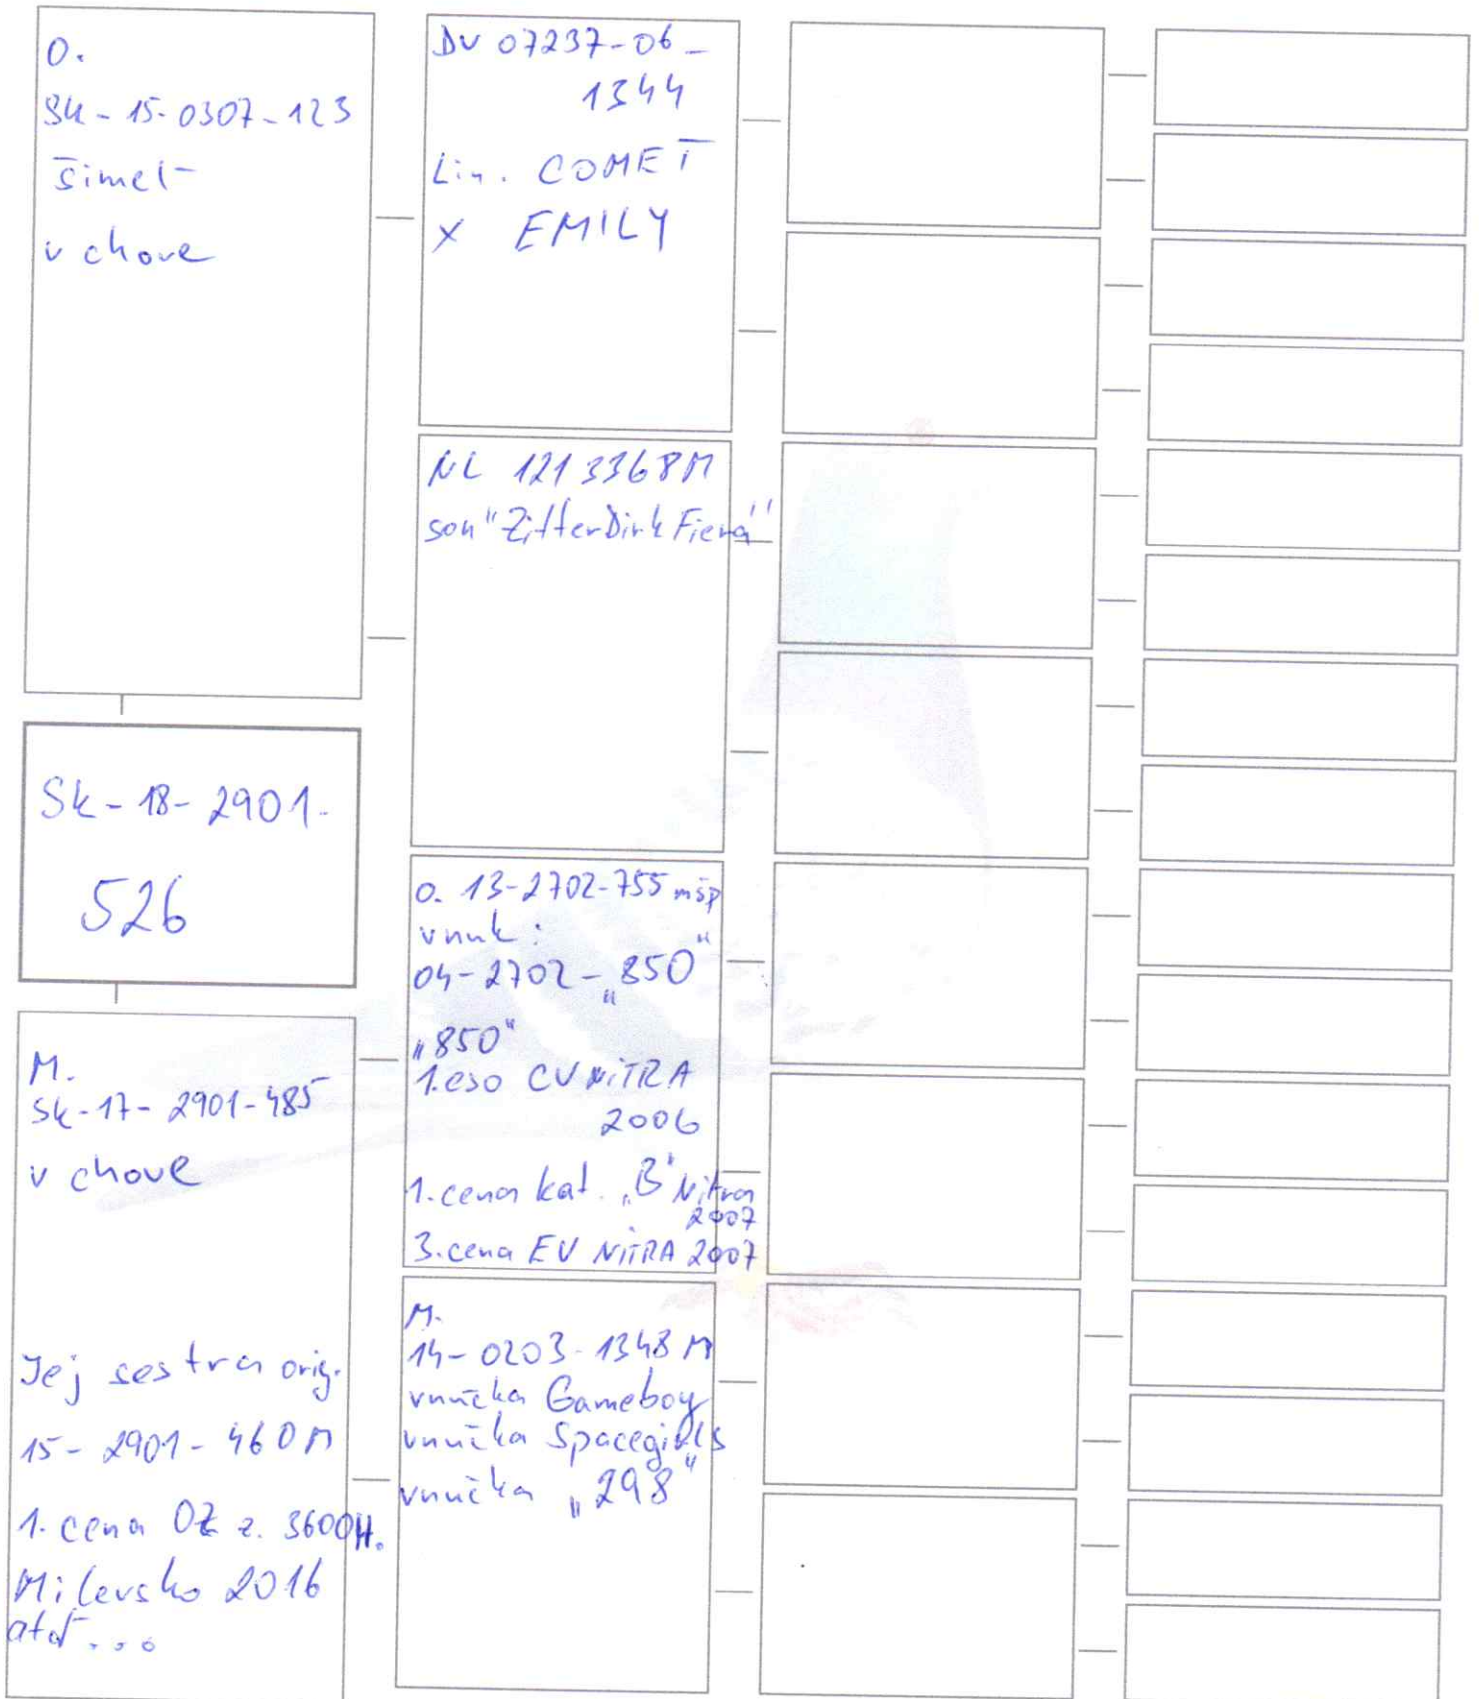 O.
Sk - 15-0307-123
Šimel
v chove
Sk - 18- 2901-
526
M.
Sk-17- 2901-485
v chove
Jej sestra orig.
15- 2901- 460 M
1. cena OZ z. 3600H.
Milevsko 2016
atď...
DV 07237-06-
1344
Lin. COMET
x EMILY
NL 1213368M
son "Zitter Dirk Fiena"
O. 13-2702-755 mšp
vnuk:
04-2702-„850“
„850“
1. eso CV NITRA
2006
1. cena kat. „B“ Nitra
2007
3. cena EV NITRA 2007
M.
14-0203-1348 M
vnučka Gameboy
vnučka Spacegirls
vnučka „298“